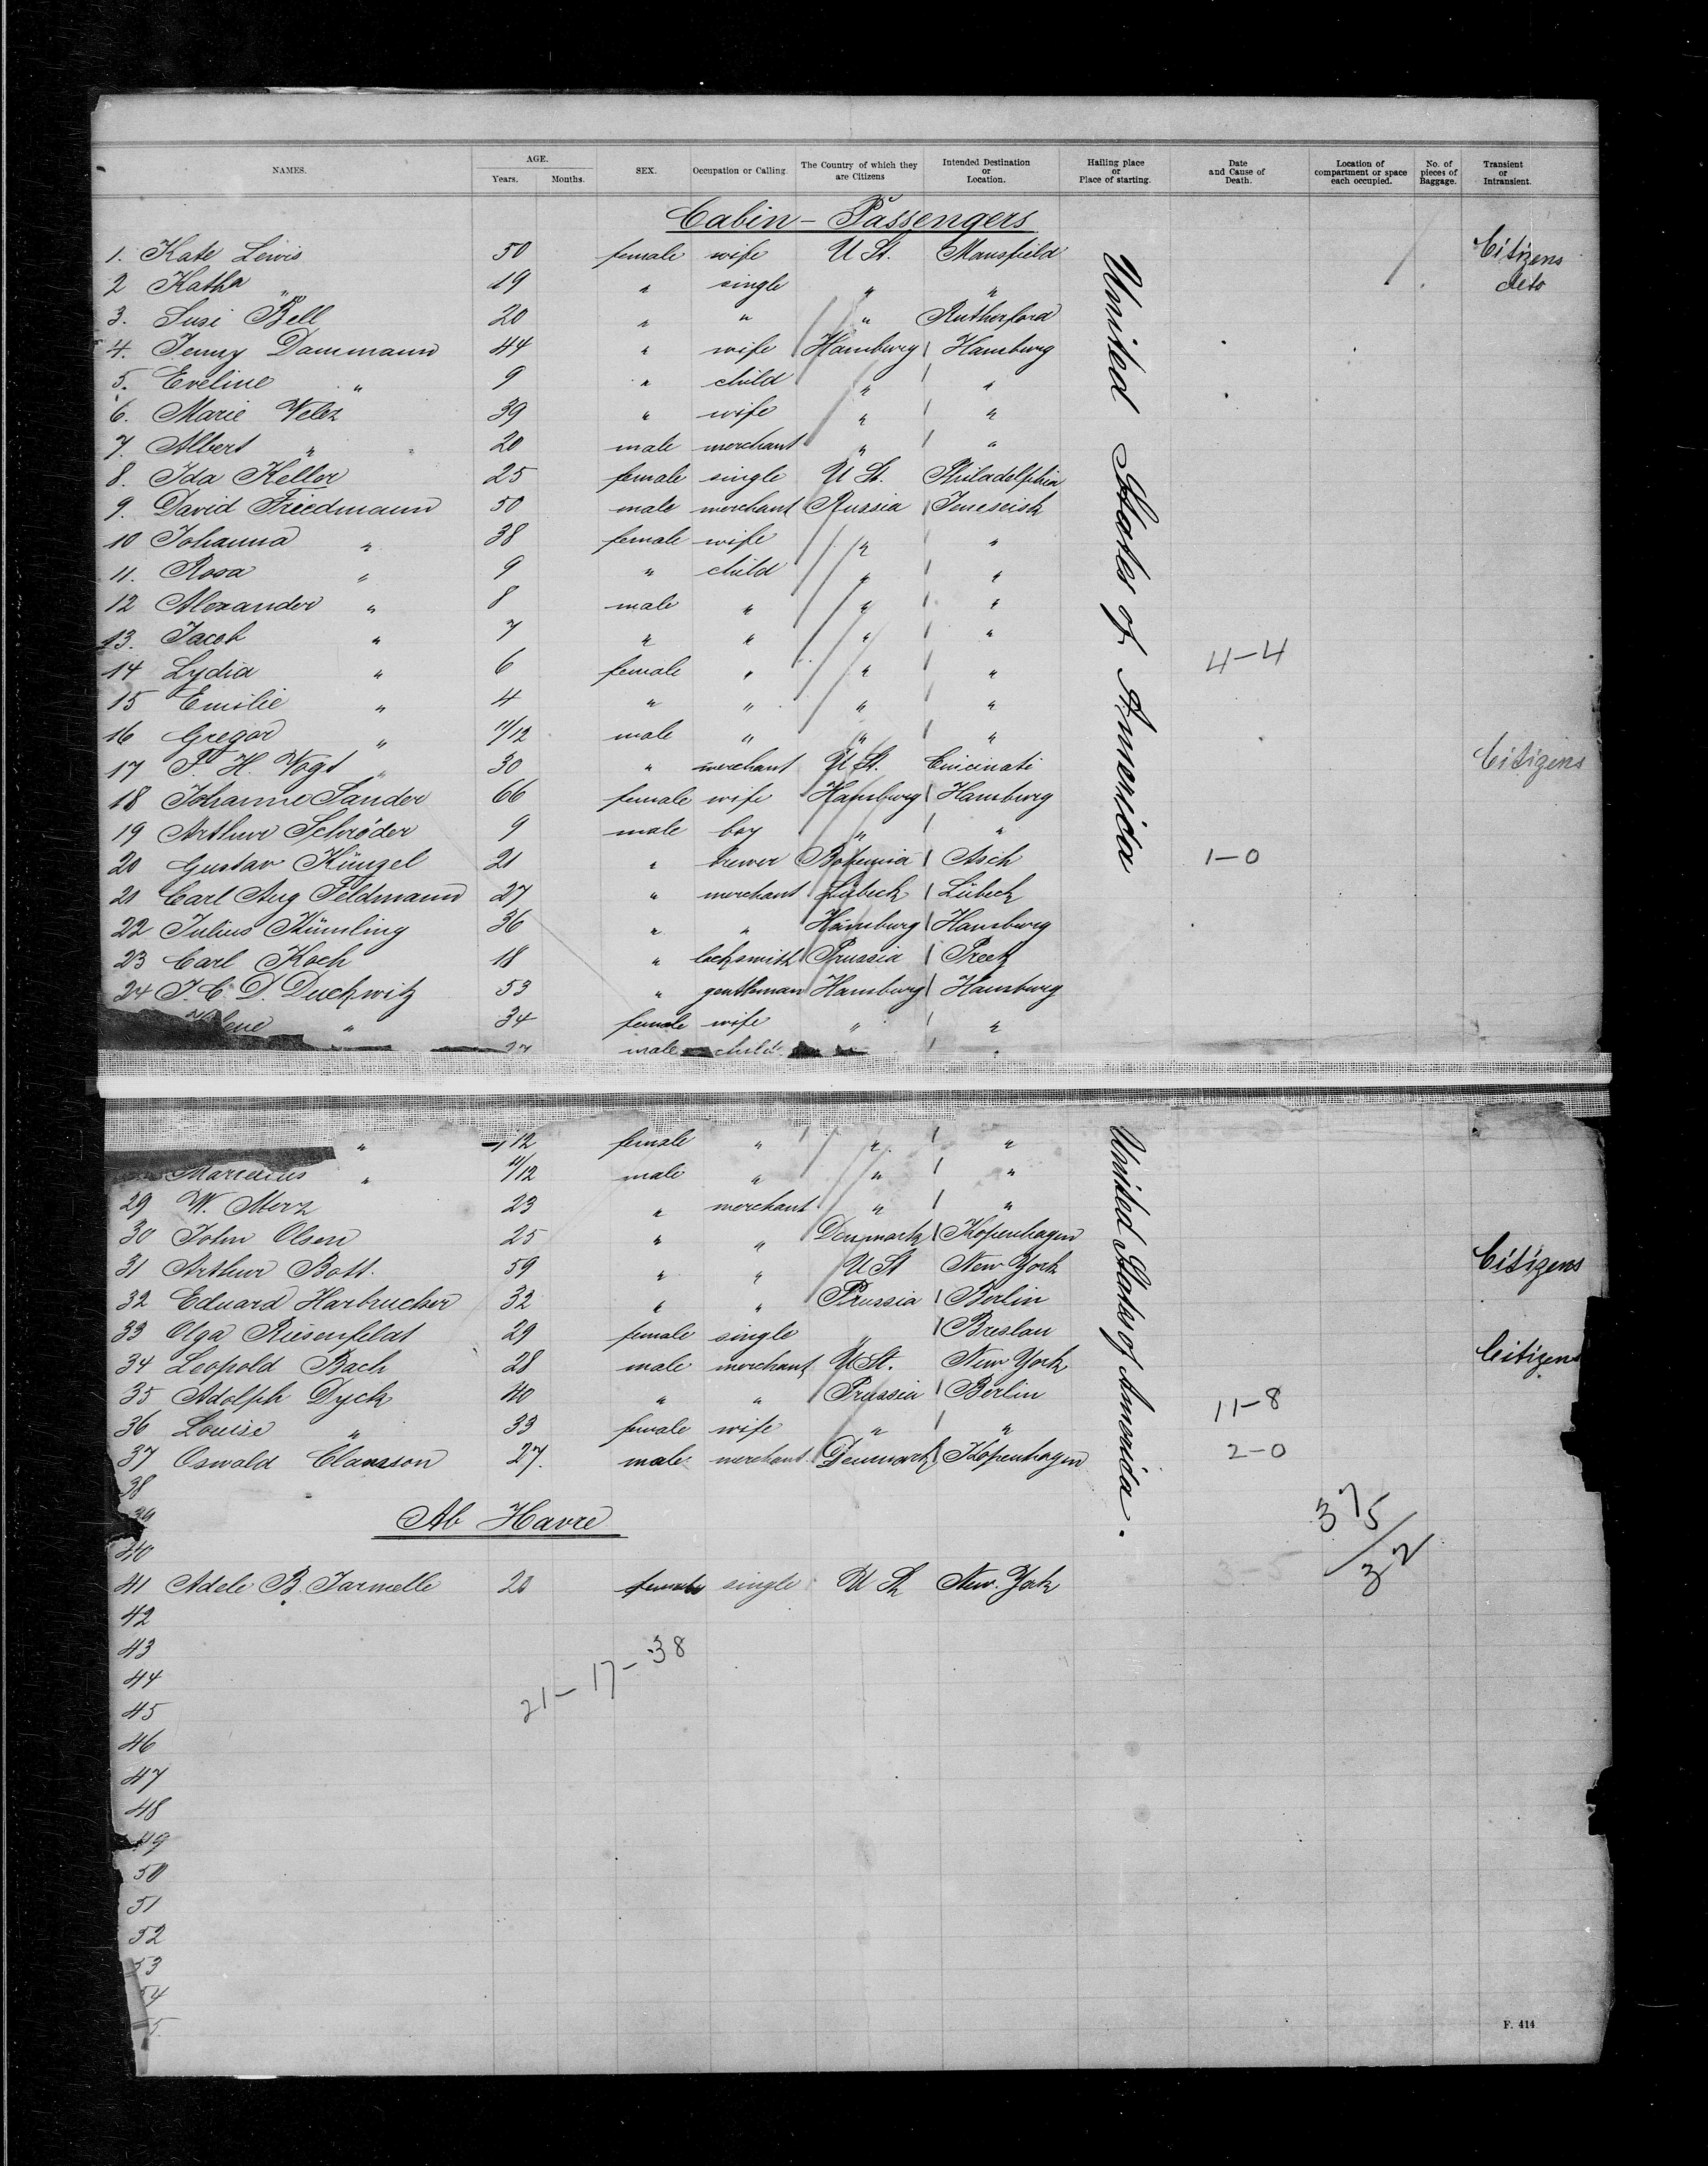 NAMES. AGE. Years. Months. SEX. Occupation or Calling. The Country of which they are Citizens Intended Destination or Location. Hailing place or Place of starting. Date and Cause of Death. Location of compartment or space each occupied. No. of pieces of Baggage. Transient or Intransient.
Cabin - Passengers
1. Kate Lewis 50 female wife U St. Mansfield Citizens
2 Katha " 19 " single " " deto
3. Susi Bell 20 " " " Rutherford
4. Jenny Dammann 44 " wife Hamburg Hamburg
5. Eveline " 9 " child " "
6. Marie Velez 39 " wife " "
7. Albert " 20 male merchant " "
8. Ida Keller 25 female single U St. Philadelphia
9. David Friedmann 50 male merchant Russia Jeneseisk
10 Johanna " 38 female wife " "
11. Rosa " 9 " child " "
12 Alexander " 8 male " " "
13. Jacob " 7 " " " "
14 Lydia " 6 female " " " 4-4
15 Emilie " 4 " " " "
16 Gregor " 11/12 male " " "
17 T. H. Vogt 30 " merchant U St. Cincinati Citizens
18 Johanne Sander 66 female wife Hamburg Hamburg
19 Arthur Schröder 9 male boy " "
20 Gustav Künzel 21 " brewer Bohemia Asch 1-0
21 Carl Aug Feldmann 27 " merchant Lübeck Lübeck
22 Julius Kümling 36 " " Hamburg Hamburg
23 Carl Koch 18 " locksmith Prussia Preetz
24 J. C. D. Duckwitz 53 " gentleman Hamburg Hamburg
" 34 female wife " "
male child
United States of America
" female " " "
" 11/12 male " " "
29 W. Merz 23 " merchant " "
30 John Olsen 25 " " Denmark Kopenhagen
31 Arthur Bott. 59 " " U St New York Citizens
32 Eduard Harbrucker 32 " " Prussia Berlin
33 Olga Riesenfeldt 29 female single " Breslau
34 Leopold Bach 28 male merchant U St. New York Citizens
35 Adolph Dyck 40 " " Prussia Berlin 11-8
36 Louise " 33 female wife " "
37 Oswald Clansson 27. male merchant Denmark Kopenhagen 2-0
United States of America.
38
39
Ab Havre
375/32
40
41 Adele B. Jarmelle 20 female single U St New York
42
43
21-17-38
44
45
46
47
48
49
50
51
52
53
54
F. 414